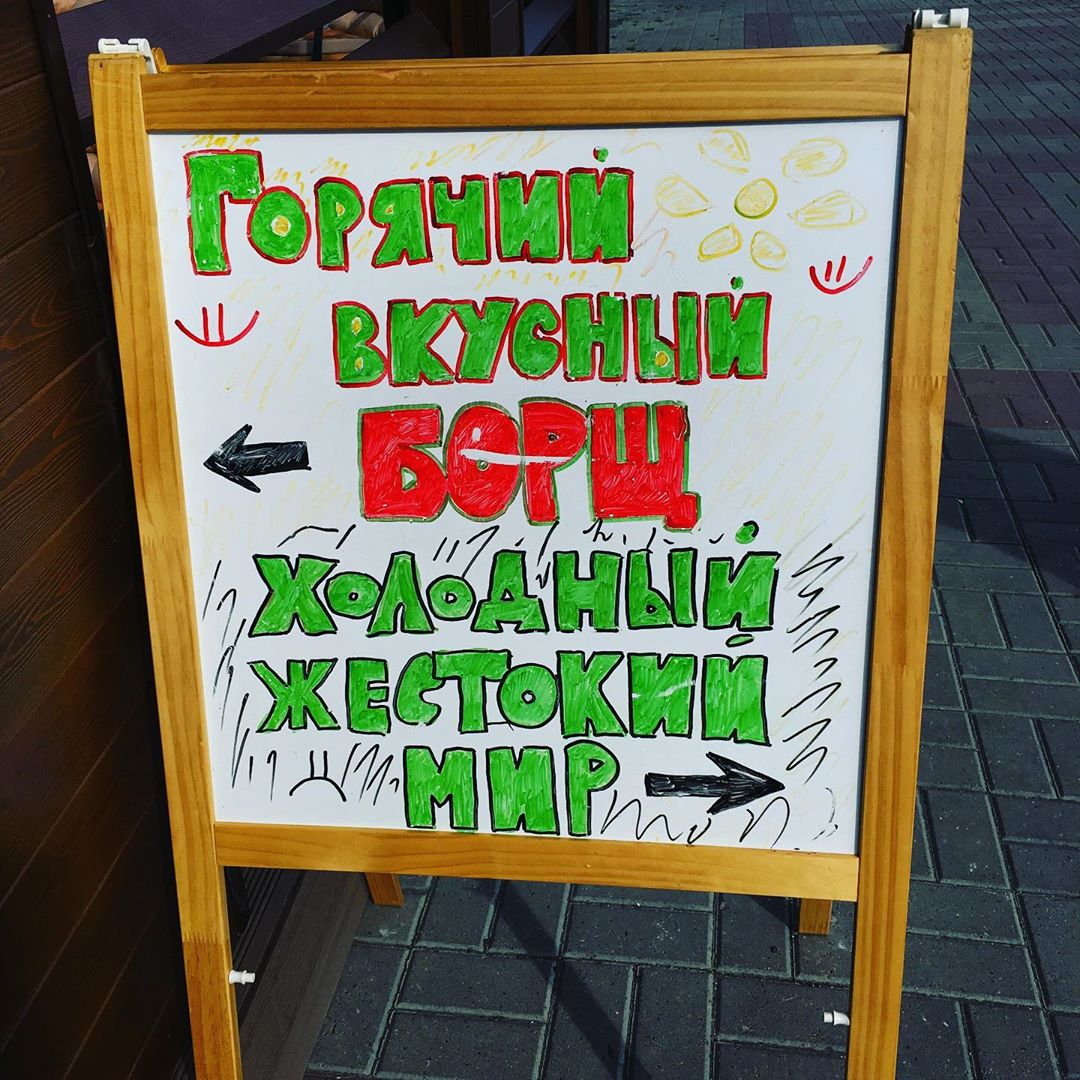 Горячий
вкусный
БОРЩ
Холодный
жестокий
мир